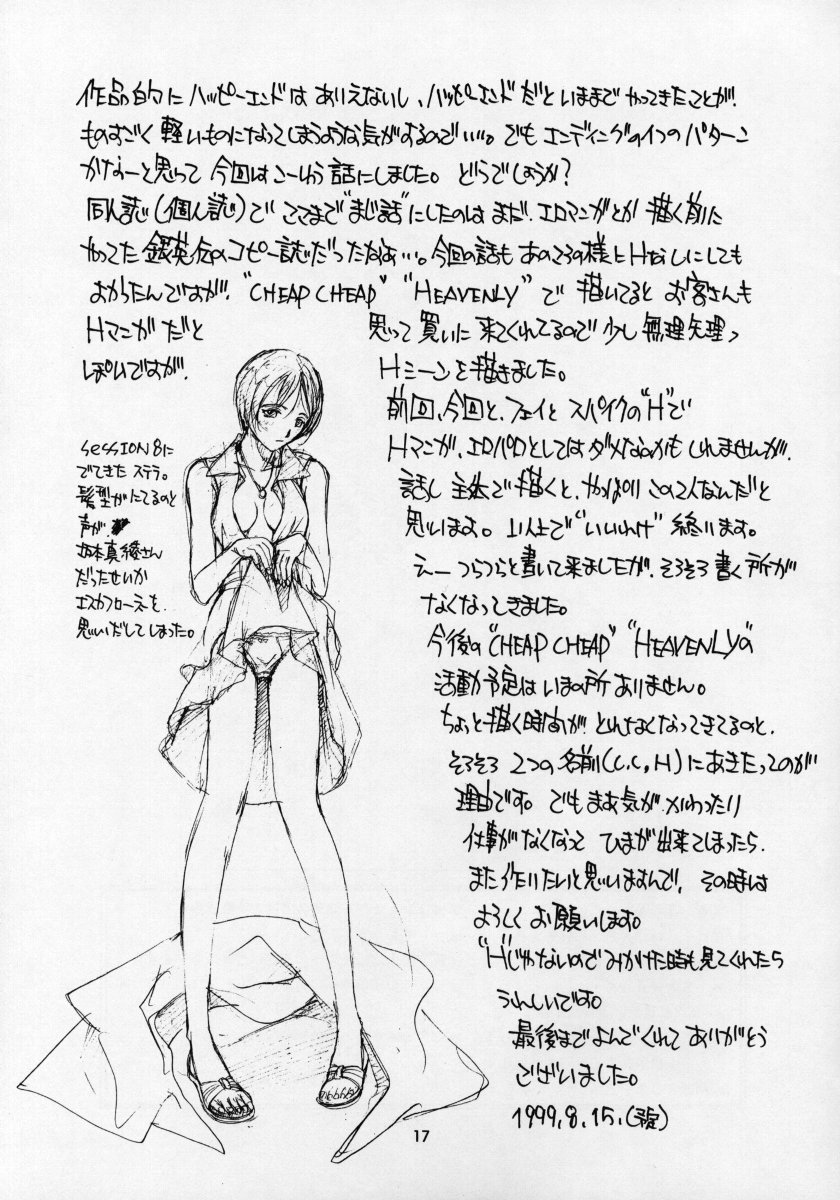 作品的にハッピーエンドはありえないし、ハッピーエンドだといままでやってきたことが
ものすごく軽いものになってしまうような気がするので…。でもエンディングの1つのパターン
かなーと思って今回はこーいう話にしました。どうでしょうか?
同人誌(個人誌)でここまで"まじ話"にしたのはまだ、エロマンガとか描く前に
やってた銀英伝のコピー誌だったかなあ…。今回の話もあのころの様にHなしにしても
よかったんですが、"CHEAP CHEAP" "HEAVENLY"で描いてるとお客さんも
Hマンガだと思って買いに来てくれてるので少し無理矢理っ
ぽいですが、Hシーンを描きました。
前回、今回と、フェイとスパイクの"H"で
Hマンガ、エロパロとしてはダメなのかもしれませんが、
話し主体で描くと、やっぱりこの2人なんだと
思います。以上で"いいわけ"終ります。
えーつらつらと書いて来ましたが、そろそろ書く所が
なくなってきました。
今後の"CHEAP CHEAP" "HEAVENLY"の
活動予定はいまの所ありません。
ちょっと描く時間がとれなくなってきてるのと、
そろそろ2つの名前(C.C,H)にあきたってのが
理由です。でもまあ気がかわったり
仕事がなくなって ひまが出来てしまったら、
また作りたいと思いますんで、その時は
よろしくお願いします。
"H"じゃないのでみかけた時も見てくれたら
うれしいです。
最後までよんでくれてありがとう
ございました。
1999.8.15.
SESSION8に
でてきたステラ。
髪型がにてるのと
声が
坂本真綾さん
だったせいか
エスカフローネを、
思いだしてしまった。
17